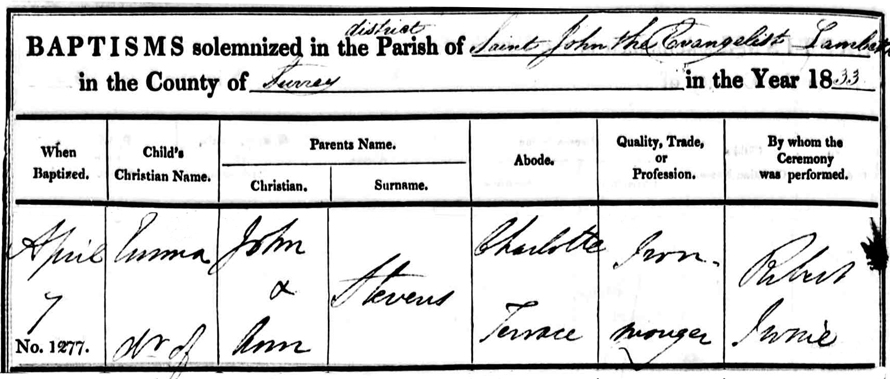 district
BAPTISMS solemnized in the Parish of Saint John the Evangelist Lambeth
in the County of Surrey in the Year 1833
When Baptized.
Child's Christian Name.
Parents Name.
Christian.
Surname.
Abode.
Quality, Trade, or Profession.
By whom the Ceremony was performed.
April 7
No. 1277.
Emma
dr of
John
&
Ann
Stevens
Charlotte
Terrace
Iron-
monger
Robert
Irvine